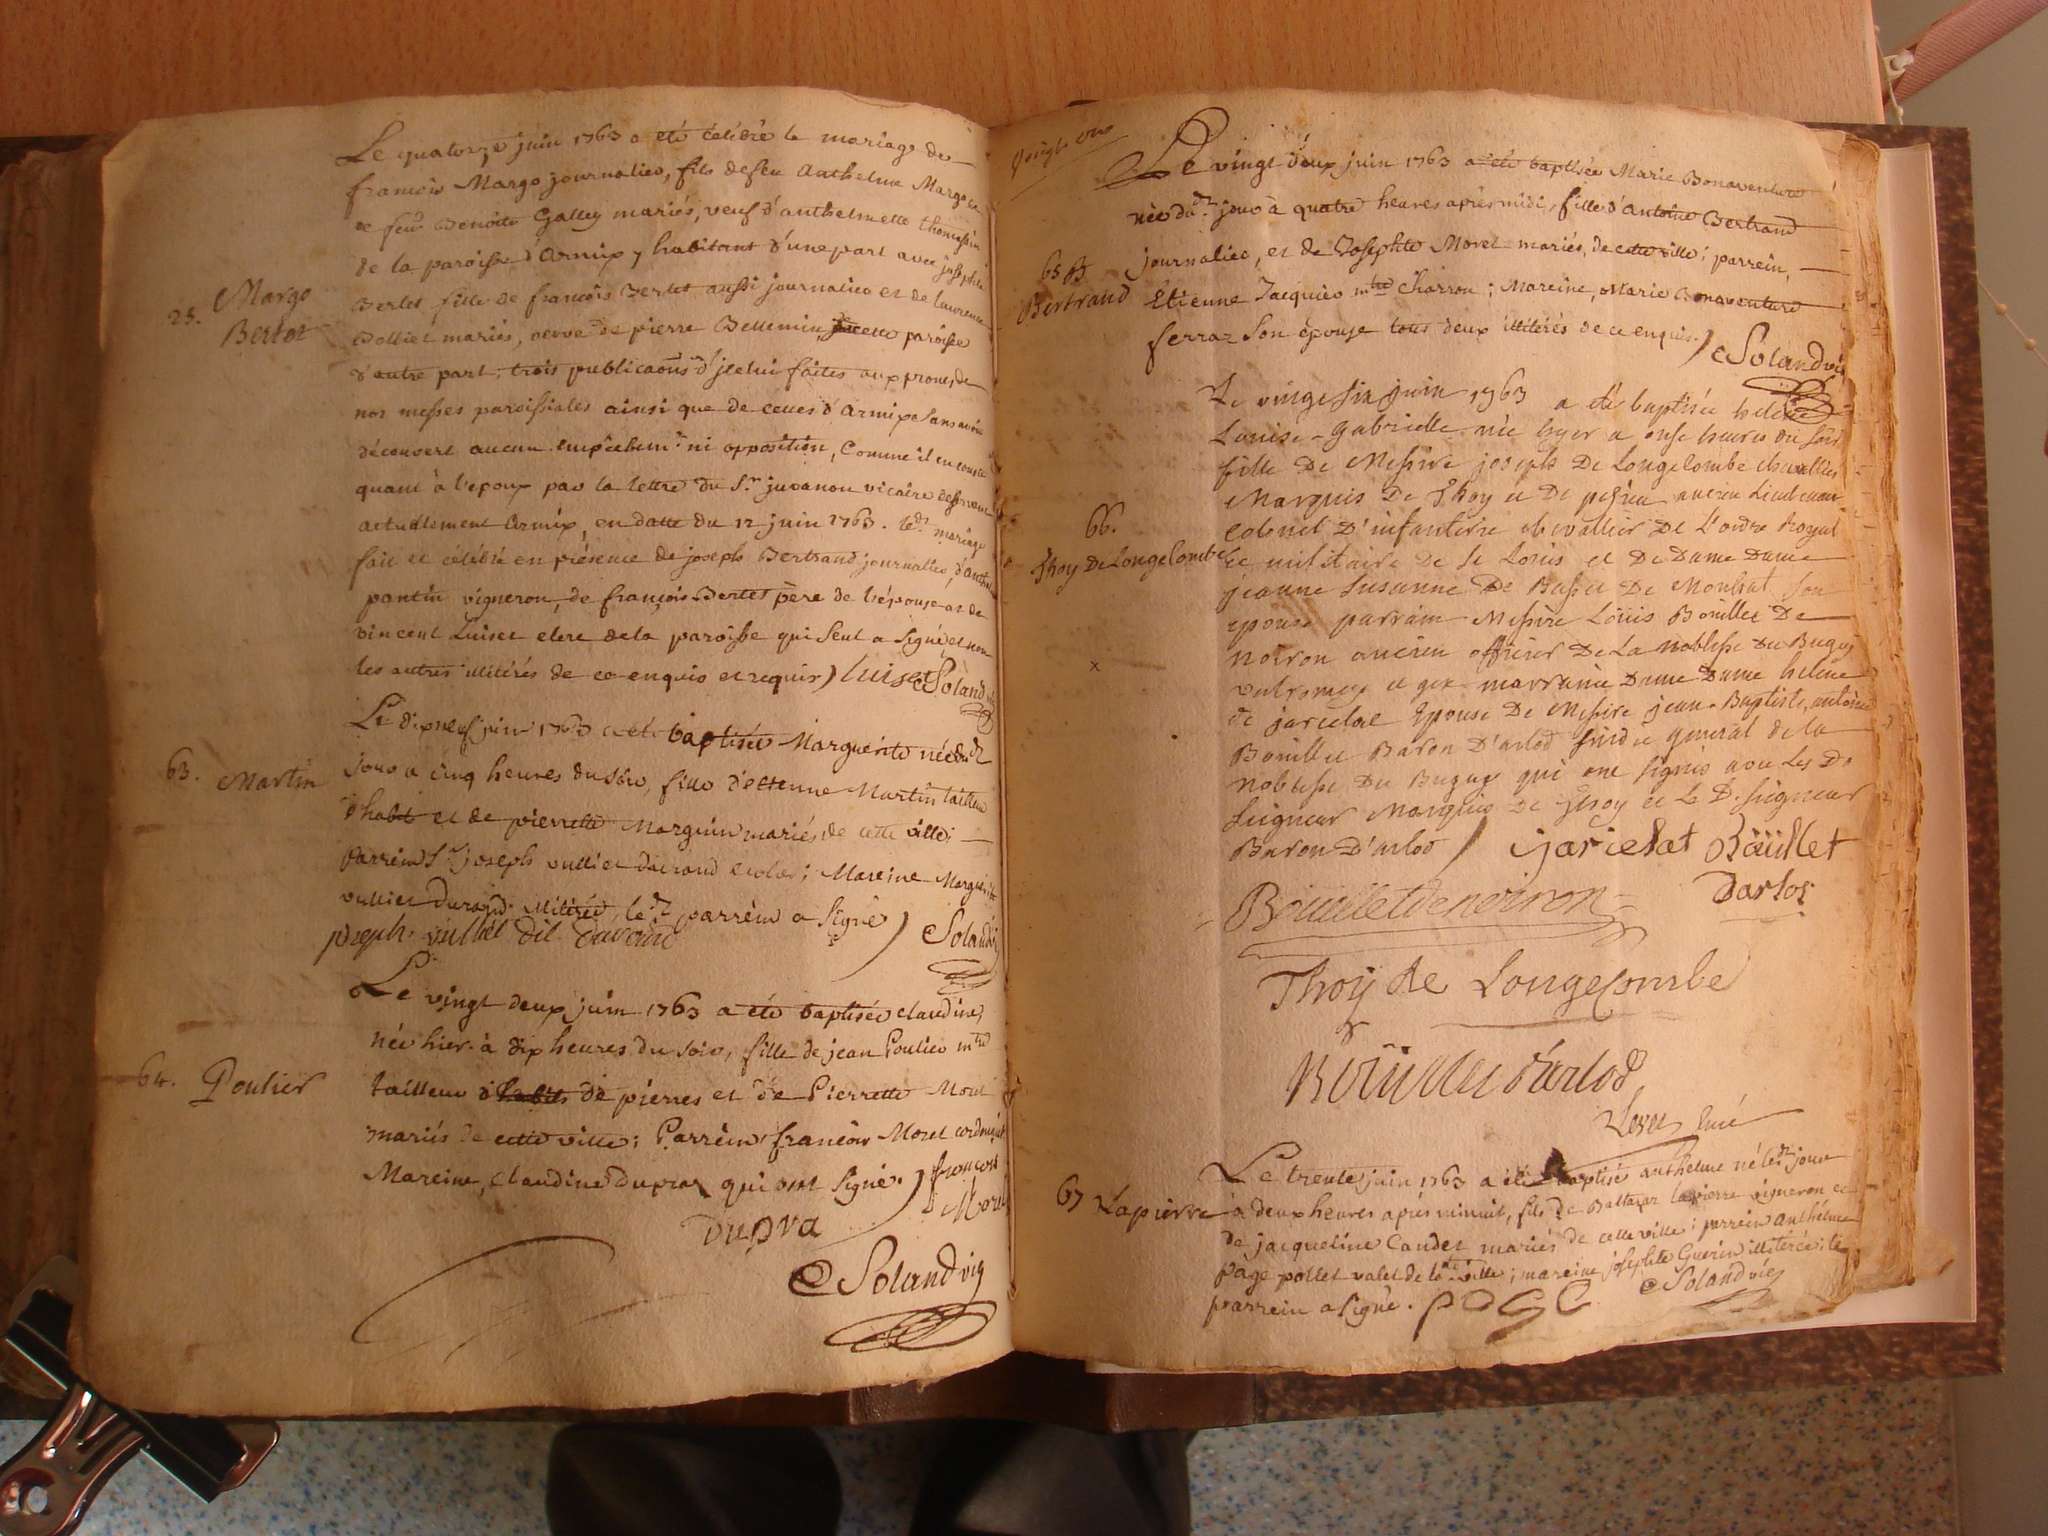 Le quatorze juin 1763 a été célébré le mariage de
françois Margo journalier, fils de feu Anthelme Margo et
de feue Benoite Galley mariés, veuf d'anthelmette thomassin
de la paroisse d'Armix y habitant d'une part avec josephte
25. Margo Bertet
Bertet fille de françois Bertet aussi journalier et de laurence
Dollier mariés, veuve de pierre Bellemin, de cette paroisse
d'autre part, trois publicaons d'jcelui faites aux prones de
nos messes paroissiales ainsi que de celles d'Armix sans avoir
découvert aucun empéchemt. ni opposition, Comme il en conste
quant à l'epoux par la lettre du Sr. juvanon vicaire desservant
actuellement Armix, en datte du 12 juin 1763. ledt. mariage
fait et célébré en présence de joseph Bertrand journalier, d'anthe
pantin vigneron, de françois Bertet père de l'épouse et de
vincent Luiset clerc de la paroisse qui seul a signé, et non
les autres illitérés de ce enquis et requis) luiset Soland vic
Le dixneuf juin 1763 a été baptisée Marguerite née dudt
63. Martin
jour a cinq heures du soir, fille d'etienne Martin tailleur
d'habit et de pierrette Marguin mariés de cette ville;
parrein Sr. joseph vullier durand ecolier; Mareine Marguerite
vullier durand illitérée, ledt. parrein a signé) Soland vic
joseph vulliet dit durand
Le vingt deux juin 1763 a été baptisée claudine,
née hier à dix heures du soir, fille de jean Poulier mtre
64. Poulier
tailleur d'habits de pierres et de Pierrette Moret
mariés de cette ville; Parrein, françois Moret cordonnier
Mareine, claudine dupraz qui ont signé.) francois Moret
Dupra
Soland vic
Le vingt deux juin 1763 a été baptisée Marie Bonaventure
née dudt. jour à quatre heures après midi, fille d'Antoine Bertrand
65 B
Bertrand
journalier, et de Josephte Moret mariés, de cette ville; parrein,
Etienne Jacquier mtre Charron; Mareine, Marie Bonaventure
ferraz son épouse tous deux illitérés de ce enquis.) Soland vic
Le vingt six juin 1763 a été baptisée helene
Louise-Gabrielle née hyer a onse heures du soir
fille De Messire joseph De Longecombe chevallier
Marquis De Thoy et De peseiu ancien Lieutenant
66.
Thoy De Longecombe
colonel D'infanterie chevallier De L'ordre Royal
et militaire De St Louis et De Dame Dame
jeanne Susanne De Basset De Montrat son
epouse parrain Messire Loüis Boüillet De
x
noiron ancien officier De La noblesse Du Bugey
valromey et gex marraine Dame Dame helene
de jarcelat Epouse De Messire jean-Baptiste, antoine
Boüillet Baron D'arlod sindic general de la
noblesse Du Bugey qui ont signés avec Les Dt
seigneur Marquis De Thoy et Le D. seigneur
Baron D'arlod) jarcelat Boüillet
Darlos
Boüillet de noiron
Thoy de Longecombe
Boüillet d'arlod
Curé
Le trente juin 1763 a été baptisé anthelme né ledt. jour
67 Lapierre
à deux heures après minuit, fils de Baltazar lapierre vigneron et
de jacqueline Caudet mariés de cette ville; parrein anthelme
page pollet valet de lad. ville; mareine josephte Guerin illiterée, le
parrein a signé. page Soland vic